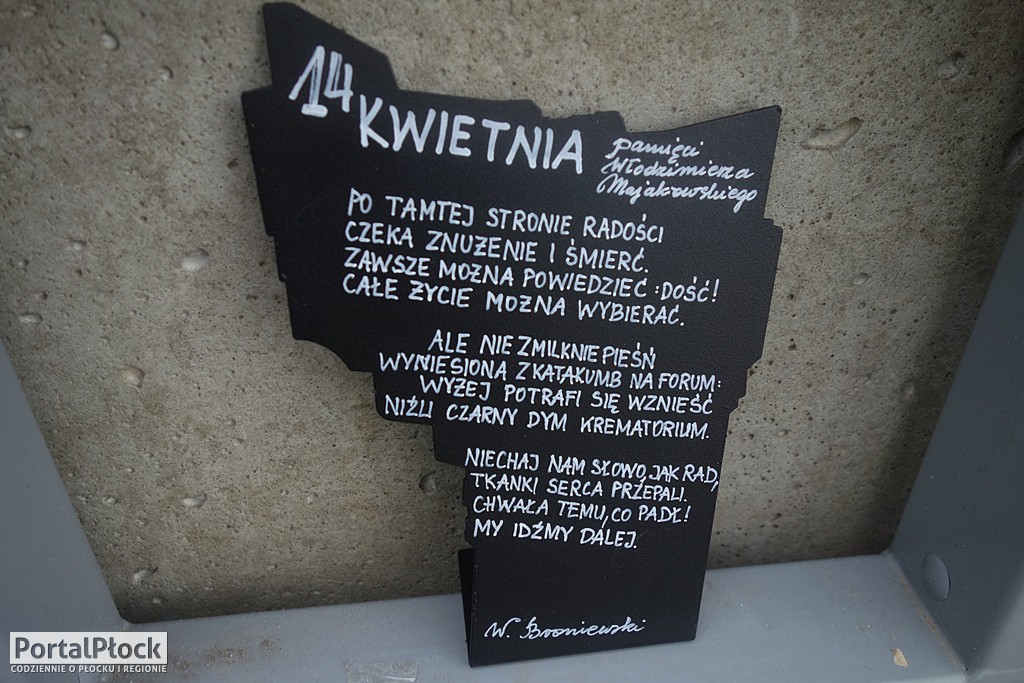 14
KWIETNIA
pamięci
Włodzimierza
Majakowskiego
PO TAMTEJ STRONIE RADOŚCI
CZEKA ZNUŻENIE I ŚMIERĆ.
ZAWSZE MOŻNA POWIEDZIEĆ :DOŚĆ!
CAŁE ŻYCIE MOŻNA WYBIERAĆ.
ALE NIE ZMILKNIE PIEŚŃ
WYNIESIONA Z KATAKUMB NA FORUM:
WYŻEJ POTRAFI SIĘ WZNIEŚĆ
NIŹLI CZARNY DYM KREMATORIUM.
NIECHAJ NAM SŁOWO, JAK RAD,
TKANKI SERCA PRZEPALI.
CHWAŁA TEMU, CO PADŁ!
MY IDŹMY DALEJ.
W. Broniewski
PortalPłock
CODZIENNIE O PŁOCKU I REGIONIE